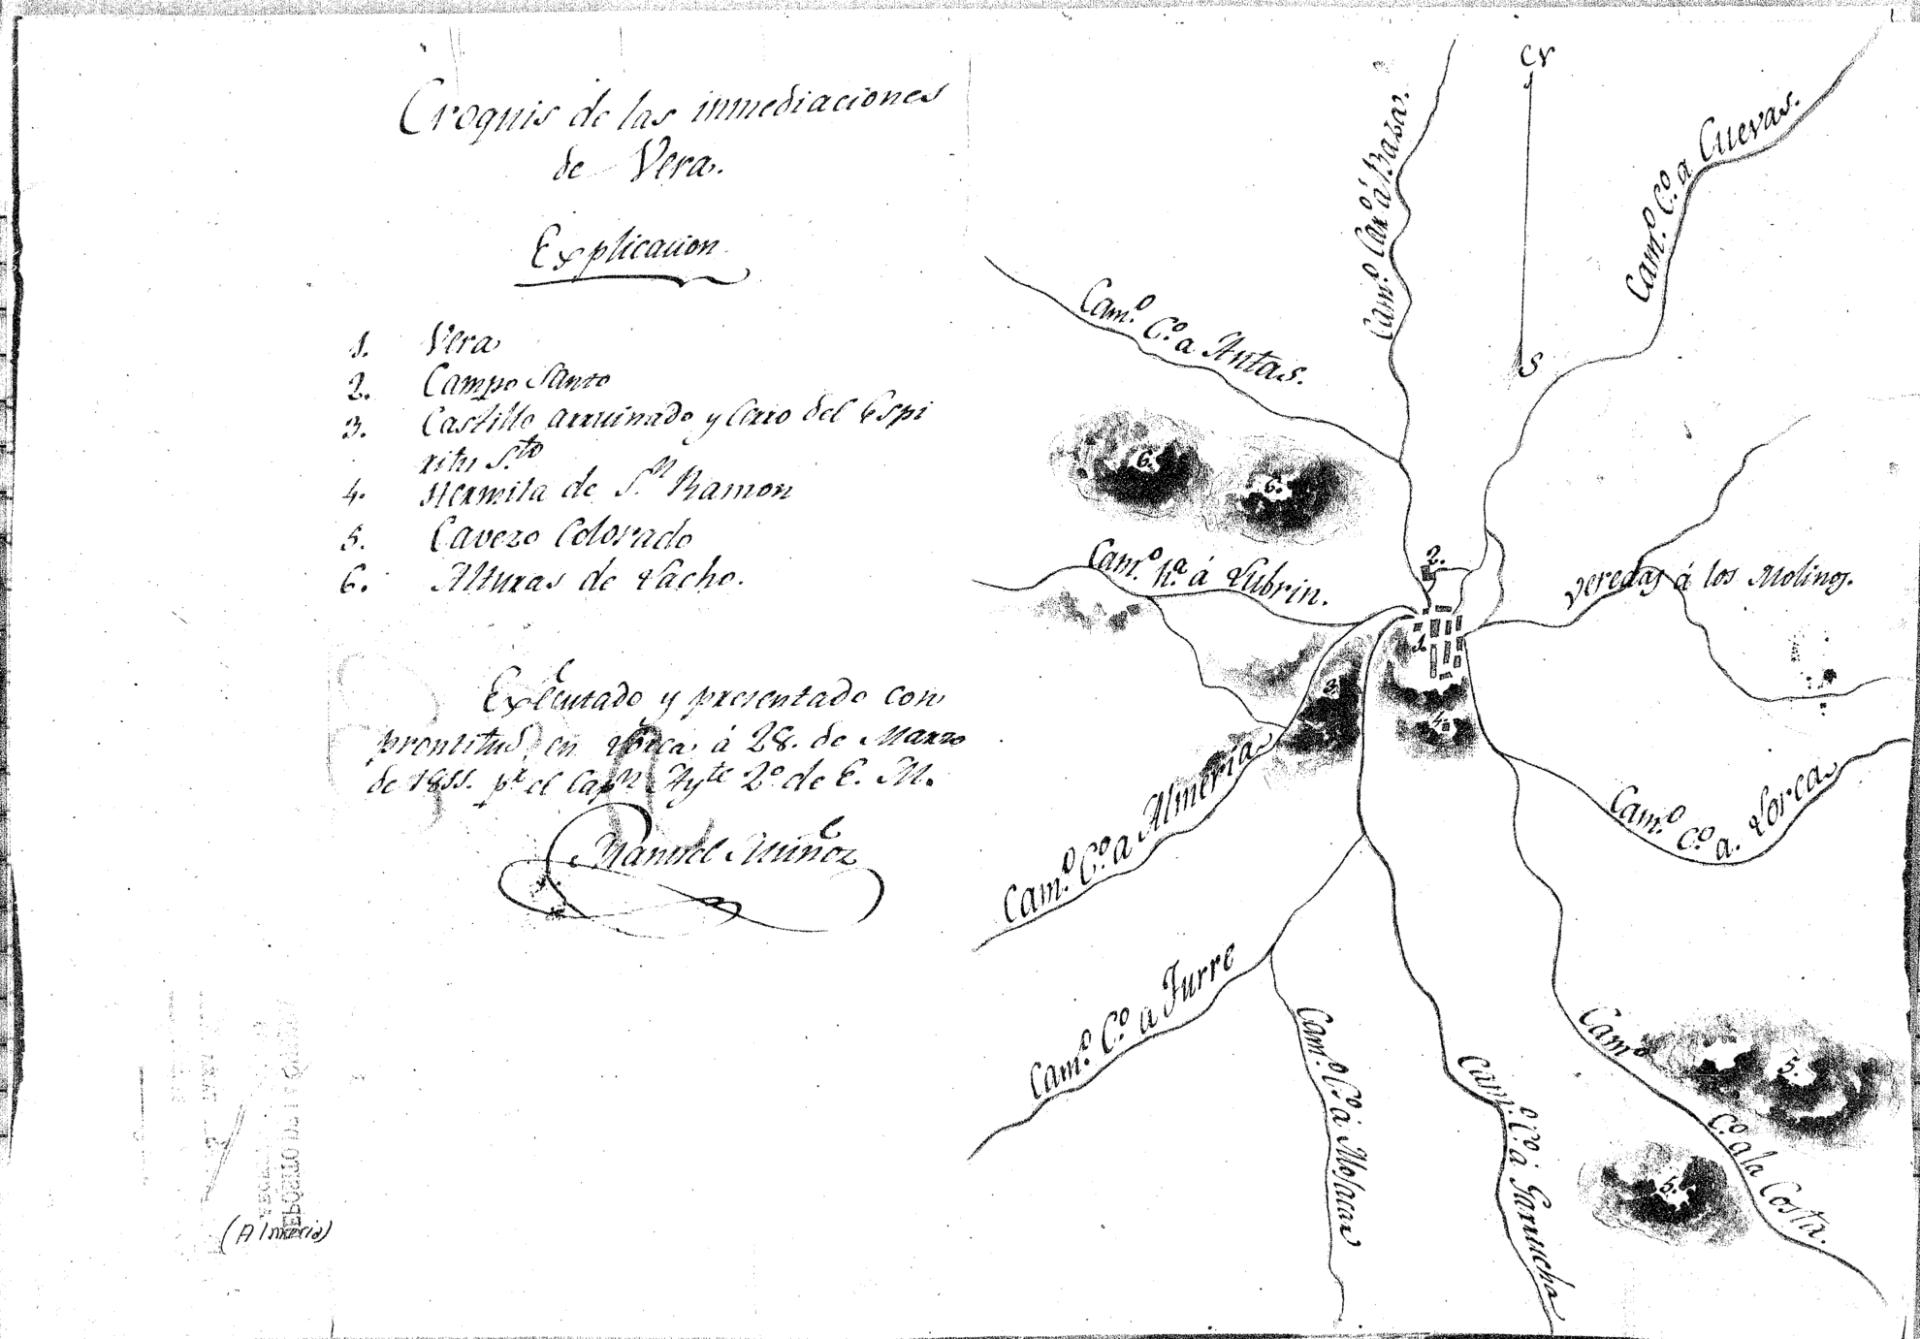 Croquis de las inmediaciones
de Vera.
Explicacion
1. Vera
2. Campo Santo
3. Castillo arruinado y Cerro del Espi
ritu S.to
4. Hermita de S.n Ramon
5. Cavezo Colorado
6. Alturas de
Executado y presentado con
prontitud, en Lorca á 28. de Marzo
de 1811. pr. el Capn. Ayte 2º de E. M.
Manuel Muñoz
(Almeria)
N
S
Cam.º Car.º á Baza.
Cam.º C.º a Cuevas.
Cam.º C.º a Antas.
6.
6.
Cam.º á Lubrin.
2.
veredas á los Molinos.
1.
3.
4.
Cam.º C.º a Almeria
Cam.º C.º a. Lorca
Cam.º C.º a Turre
Cam.º C.º á Mojacar
Cam.º C.º á Garrucha
Cam.º C.º a la Costa.
5.
5.